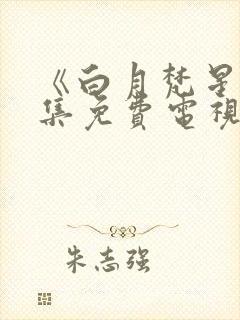 《白月梵星
集免费電視
朱志强